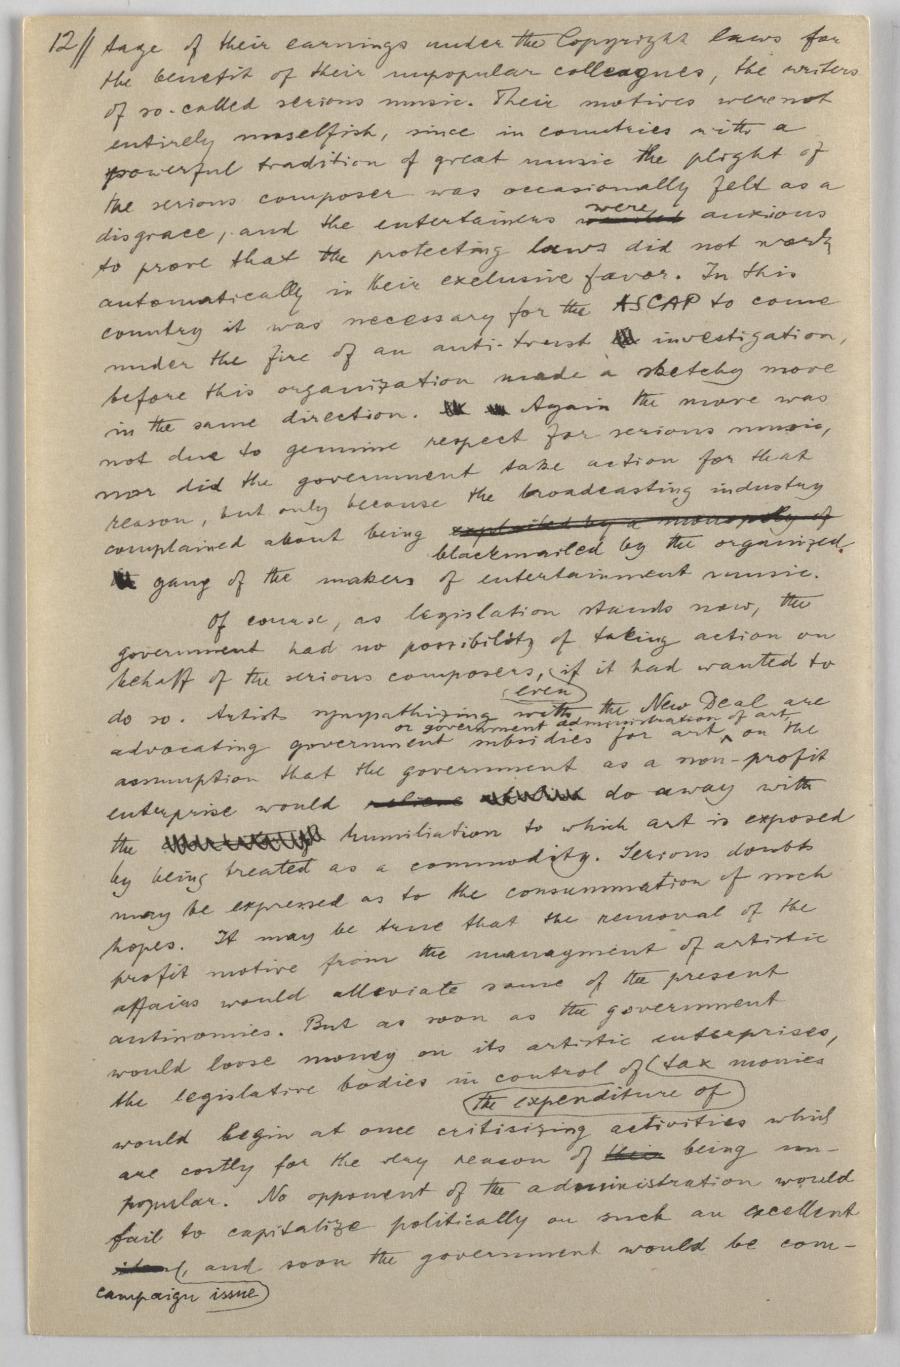 12// tage of their earnings under the Copyright laws for
the benefit of their unpopular colleagues, the writers
of so-called serious music. Their motives were not
entirely unselfish, since in countries with a
powerful tradition of great music the plight of
the serious composer was occasionally felt as a
were
disgrace, and the entertainers anxious
to prove that the protecting laws did not work
automatically in their exclusive favor. In this
country it was necessary for the ASCAP to come
under the fire of an anti-trust investigation,
before this organization made a sketchy move
in the same direction. Again the move was
not due to genuine respect for serious music,
nor did the government take action for that
reason, but only because the broadcasting industry
complained about being exploited by a monopoly of
blackmailed by the organized
gang of the makers of entertainment music.
Of course, as legislation stands now, the
government had no possibility of taking action on
behalf of the serious composers, if it had wanted to
even
do so. Artists sympathizing with the New Deal are
or government administration of art,
advocating government subsidies for art, on the
assumption that the government as a non-profit
enterprise would do away with
the humiliation to which art is exposed
by being treated as a commodity. Serious doubts
may be expressed as to the consummation of such
hopes. It may be true that the removal of the
profit motive from the managment of artistic
affairs would alleviate some of the present
antinomies. But as soon as the government
would loose money on its artistic enterprises,
the legislative bodies in control of tax monies
the expenditure of
would begin at once critisizing activities which
are costly for the very reason of their being un-
popular. No opponent of the administration would
fail to capitalize politically on such an excellent
, and soon the government would be com-
campaign issue